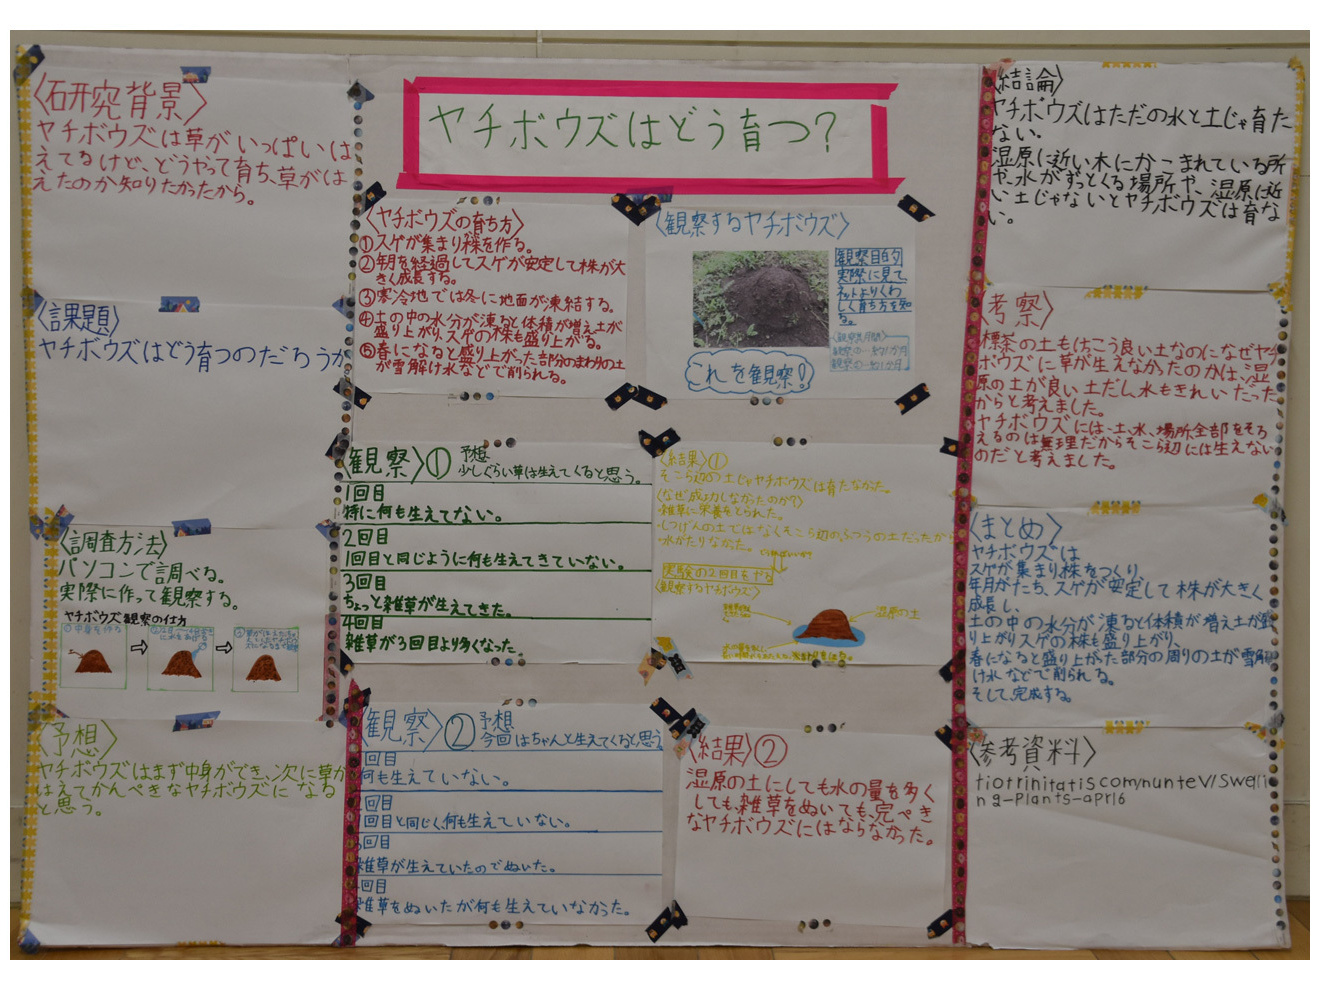 ヤチボウズはどう育つ?
〈研究背景〉
ヤチボウズは草がいっぱいは
えてるけど、どうやって育ち、草がは
えたのか知りたかったから。
〈課題〉
ヤチボウズはどう育つのだろうか
〈調査方法〉
パソコンで調べる。
実際に作って観察する。
ヤチボウズ観察の仕方
①中身を作る
〈予想〉
ヤチボウズはまず中身ができ、次に草が
はえてかんぺきなヤチボウズになる
と思う。
〈ヤチボウズの育ち方〉
①スゲが集まり株を作る。
②年月を経過してスゲが安定して株が大
きく成長する。
③寒冷地では冬に地面が凍結する。
④土の中の水分が凍ると体積が増え土が
盛り上がり、スゲの株も盛り上がる。
⑤春になると盛り上がった部分のまわりの土
が雪解け水などで削られる。
〈観察するヤチボウズ〉
観察目的
実際に見て
ネットよりくわ
しく育ち方を知
る。
これを観察!
〈観察〉① 予想
少しぐらい草は生えてくると思う。
1回目
特に何も生えてない。
2回目
1回目と同じように何も生えてきていない。
3回目
ちょっと雑草が生えてきた。
4回目
雑草が3回目より多くなった。
〈結果〉①
そこら辺の土じゃヤチボウズは育たなかった。
〈なぜ成功しなかったのか?〉
・雑草に栄養をとられた。
・しつげんの土ではなくそこら辺のふつうの土だったから
・水がたりなかった。
実験の2回目をやる
〈観察するヤチボウズ〉
湿原の土
〈観察〉② 予想
今回はちゃんと生えてくると思う
回目
何も生えていない。
回目
回目と同じく、何も生えていない。
回目
雑草が生えていたのでぬいた。
回目
雑草をぬいたが何も生えていなかった。
〈結果〉②
湿原の土にしても水の量を多く
しても、雑草をぬいても、完ぺき
なヤチボウズにはならなかった。
〈結論〉
ヤチボウズはただの水と土じゃ育た
ない。
湿原に近い木にかこまれている所
や、水がずっとくる場所や、湿原に近
い土じゃないとヤチボウズは育な
い。
〈考察〉
標茶の土もけっこう良い土なのになぜヤチ
ボウズに草が生えなかったのかは、湿
原の土が良い土だし、水もきれいだった
からと考えました。
ヤチボウズには土、水、場所全部をそろ
えるのは無理だからそこら辺には生えない
のだと考えました。
〈まとめ〉
ヤチボウズは
スゲが集まり株をつくり、
年月がたち、スゲが安定して株が大きく
成長し、
土の中の水分が凍ると体積が増え土が盛
り上がりスゲの株も盛り上がり、
春になると盛り上がった部分の周りの土が雪解
け水などで削られる。
そして、完成する。
〈参考資料〉
fiortrinitatis.com/nunteV/Sweli
ng-Plants-aPr16